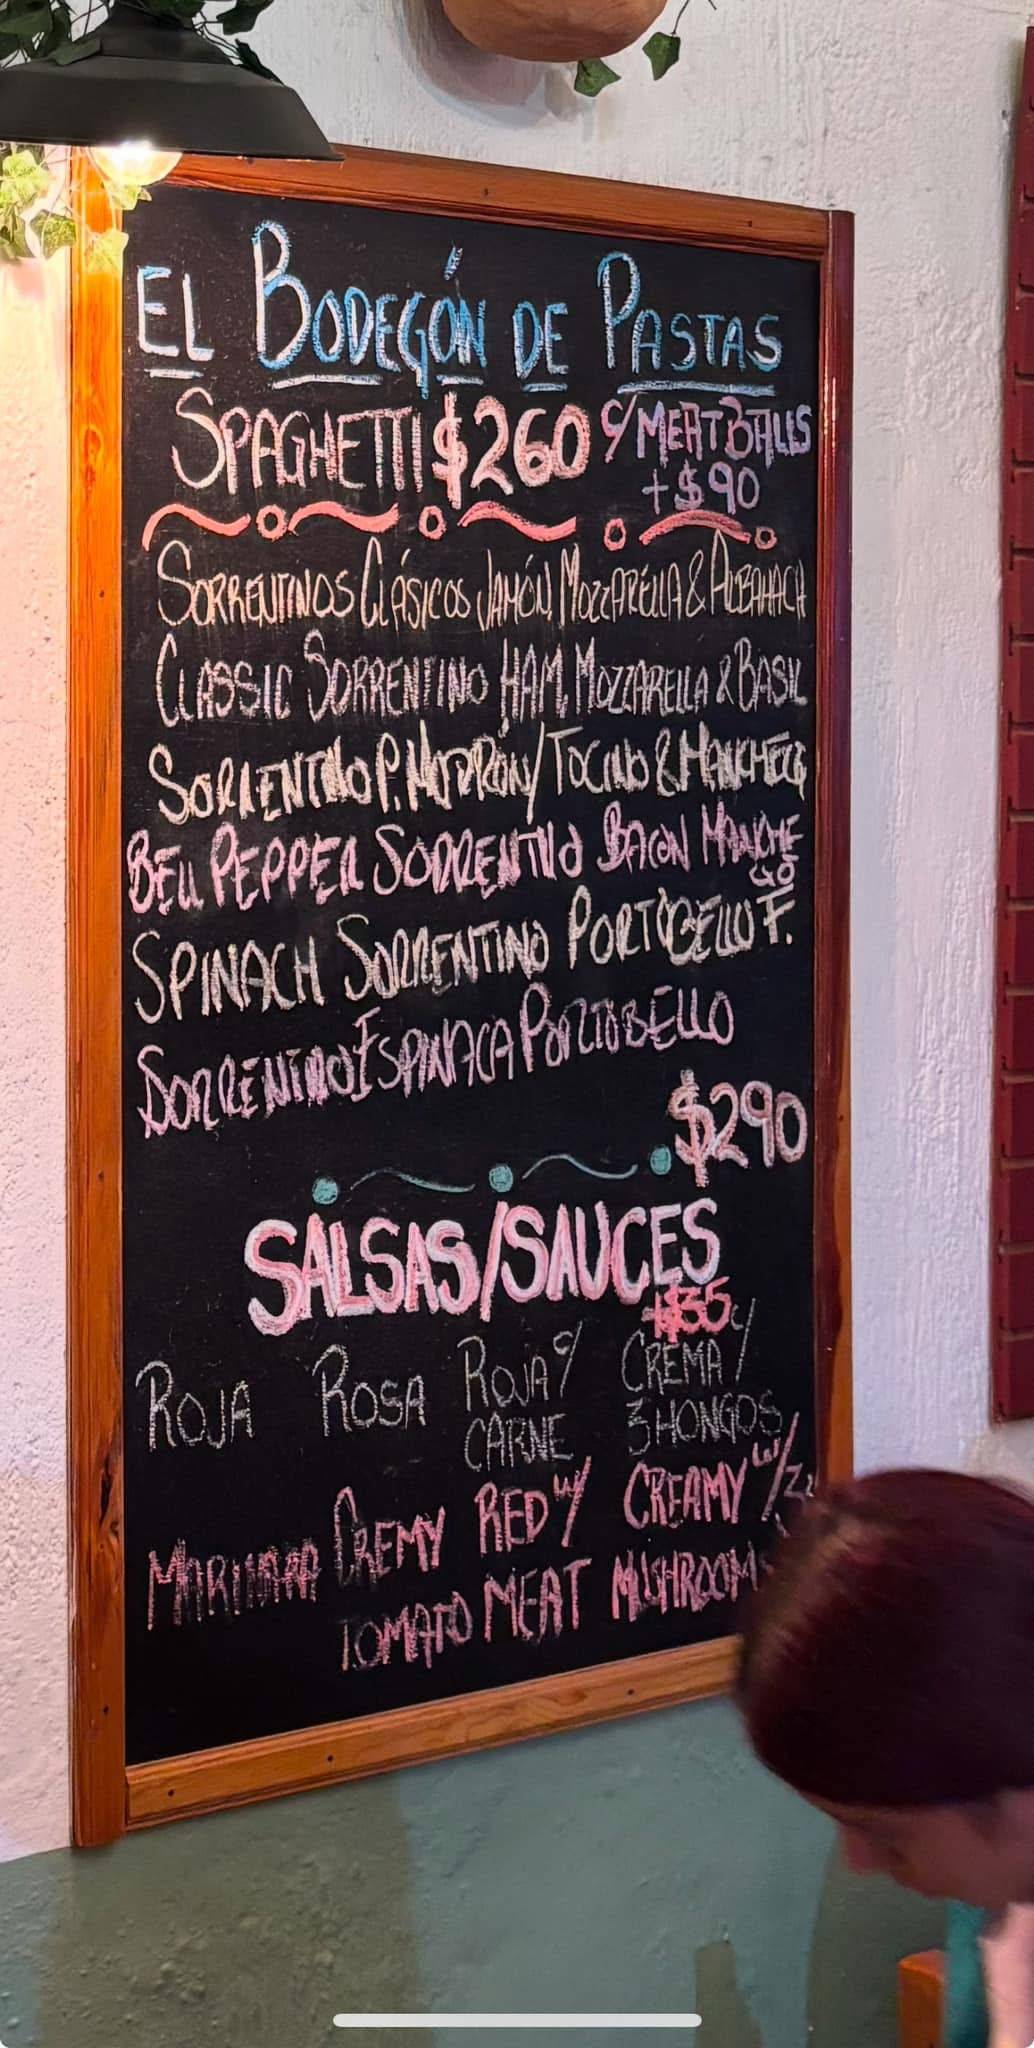 EL BODEGÓN DE PASTAS
SPAGHETTI $260 C/MEATBALLS
+$90
SORRENTINOS CLÁSICOS JAMÓN, MOZZARELLA & ALBAHACA
CLASSIC SORRENTINO HAM, MOZZARELLA & BASIL
SORRENTINO P. MORRÓN/TOCINO & MANCHEGO
BELL PEPPER SORRENTINO BACON MANCHE
GO
SPINACH SORRENTINO PORTOBELLO F.
SORRENTINO ESPINACA PORTOBELLO
$290
SALSAS/SAUCES
+$35 c/
ROJA ROSA ROJA C/ CREMA/
CARNE 3 HONGOS
MARINARA CREMY RED W/ CREAMY W/3
TOMATO MEAT MUSHROOMS